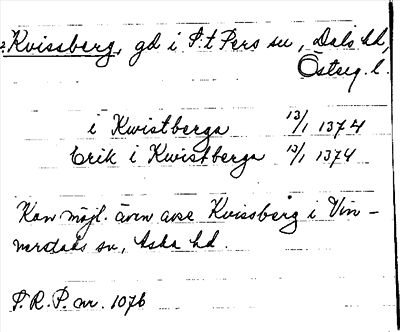 Kvissberg, gd i S:t Pers sn, Dals hd,
Östergl.
i Kwistberga 13/1 1374
Erik i Kwistberga 13/1 1374
Kan möjl. även avse Kvissberg i Vin-
nerstads sn, Aska hd.
S.R.P. nr. 1076